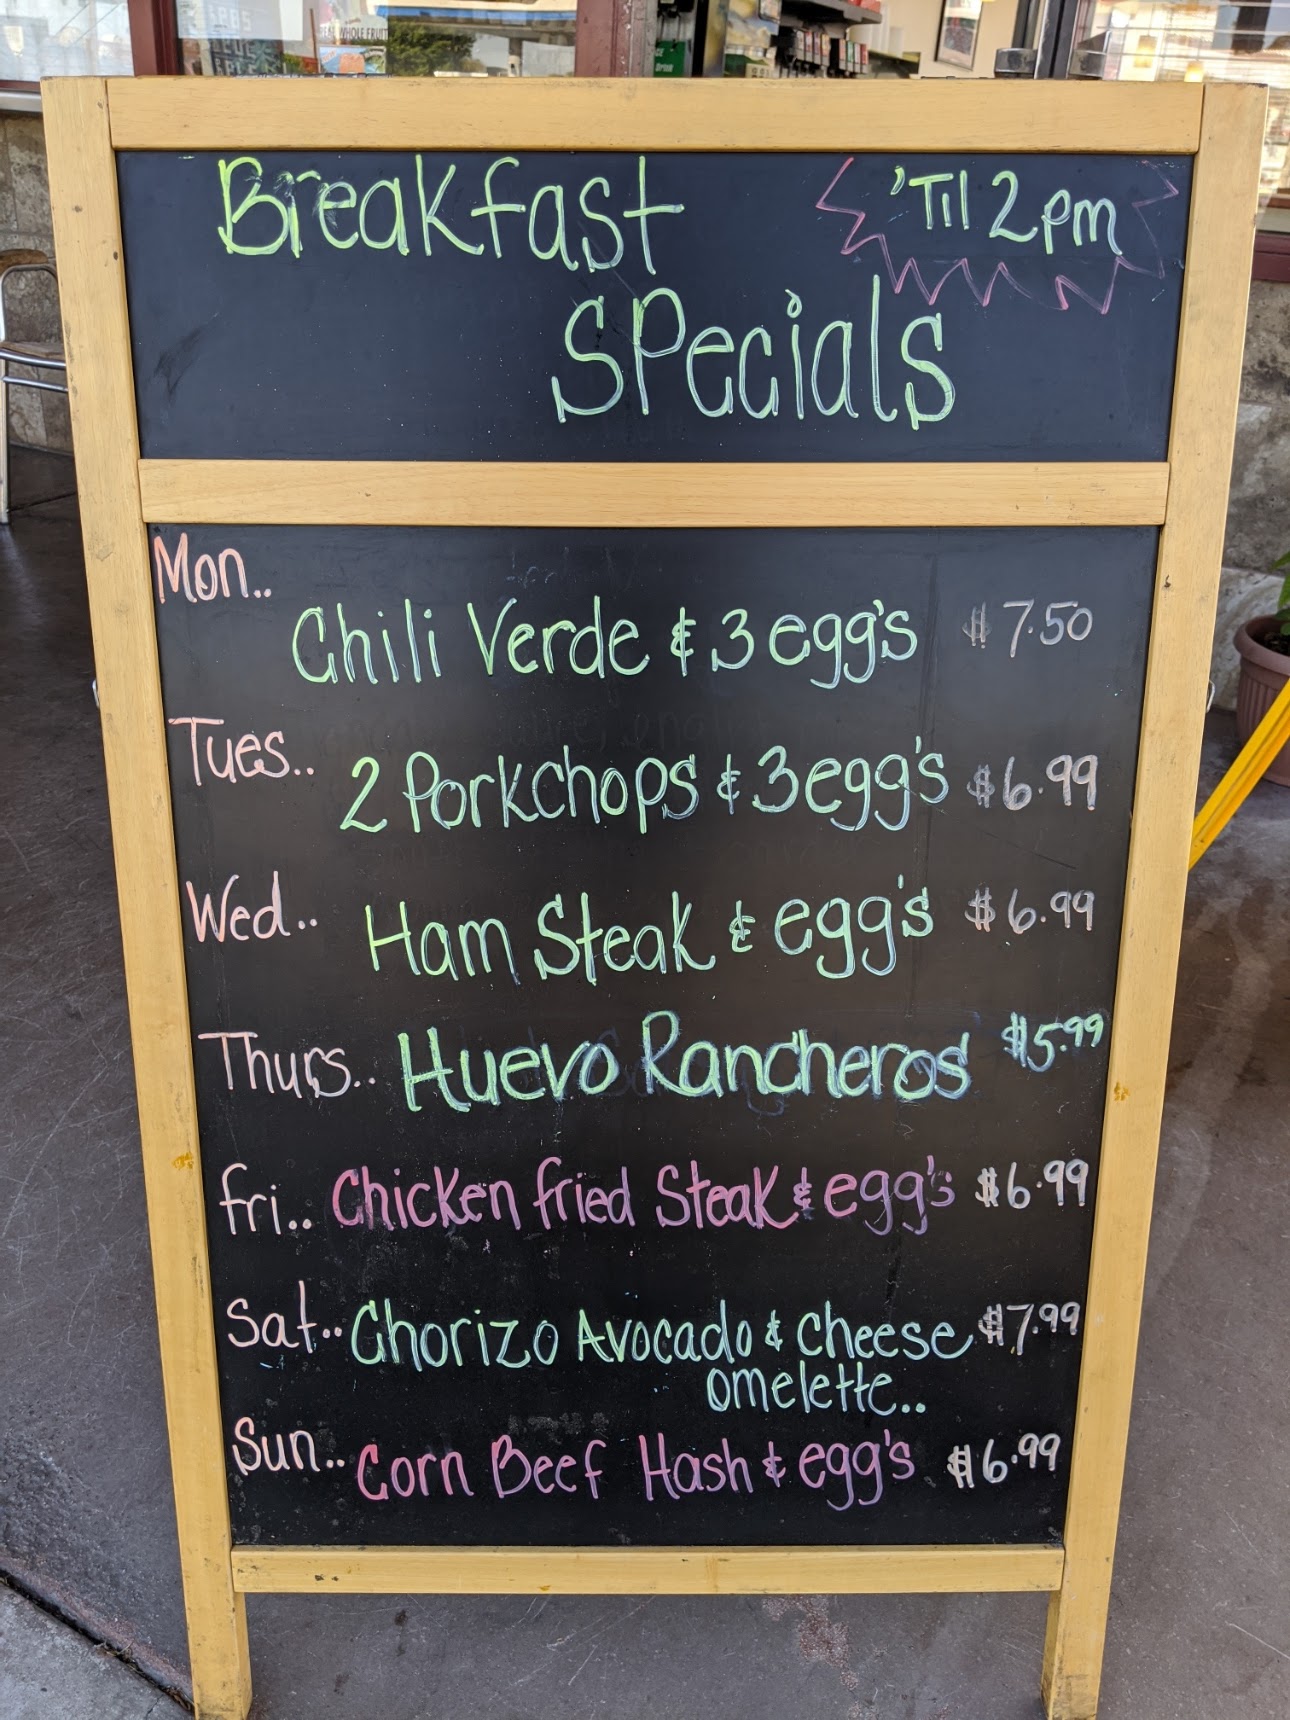 REAL WHOLE FRUIT
Breakfast
'Til 2pm
Specials
Mon..
Chili Verde & 3 egg's $7.50
Tues..
2 Porkchops & 3 egg's $6.99
Wed..
Ham Steak & egg's $6.99
Thurs.. Huevo Rancheros $5.99
Fri.. Chicken fried Steak & egg's $6.99
Sat.. Chorizo Avocado & Cheese $7.99
omelette..
Sun.. Corn Beef Hash & egg's $6.99